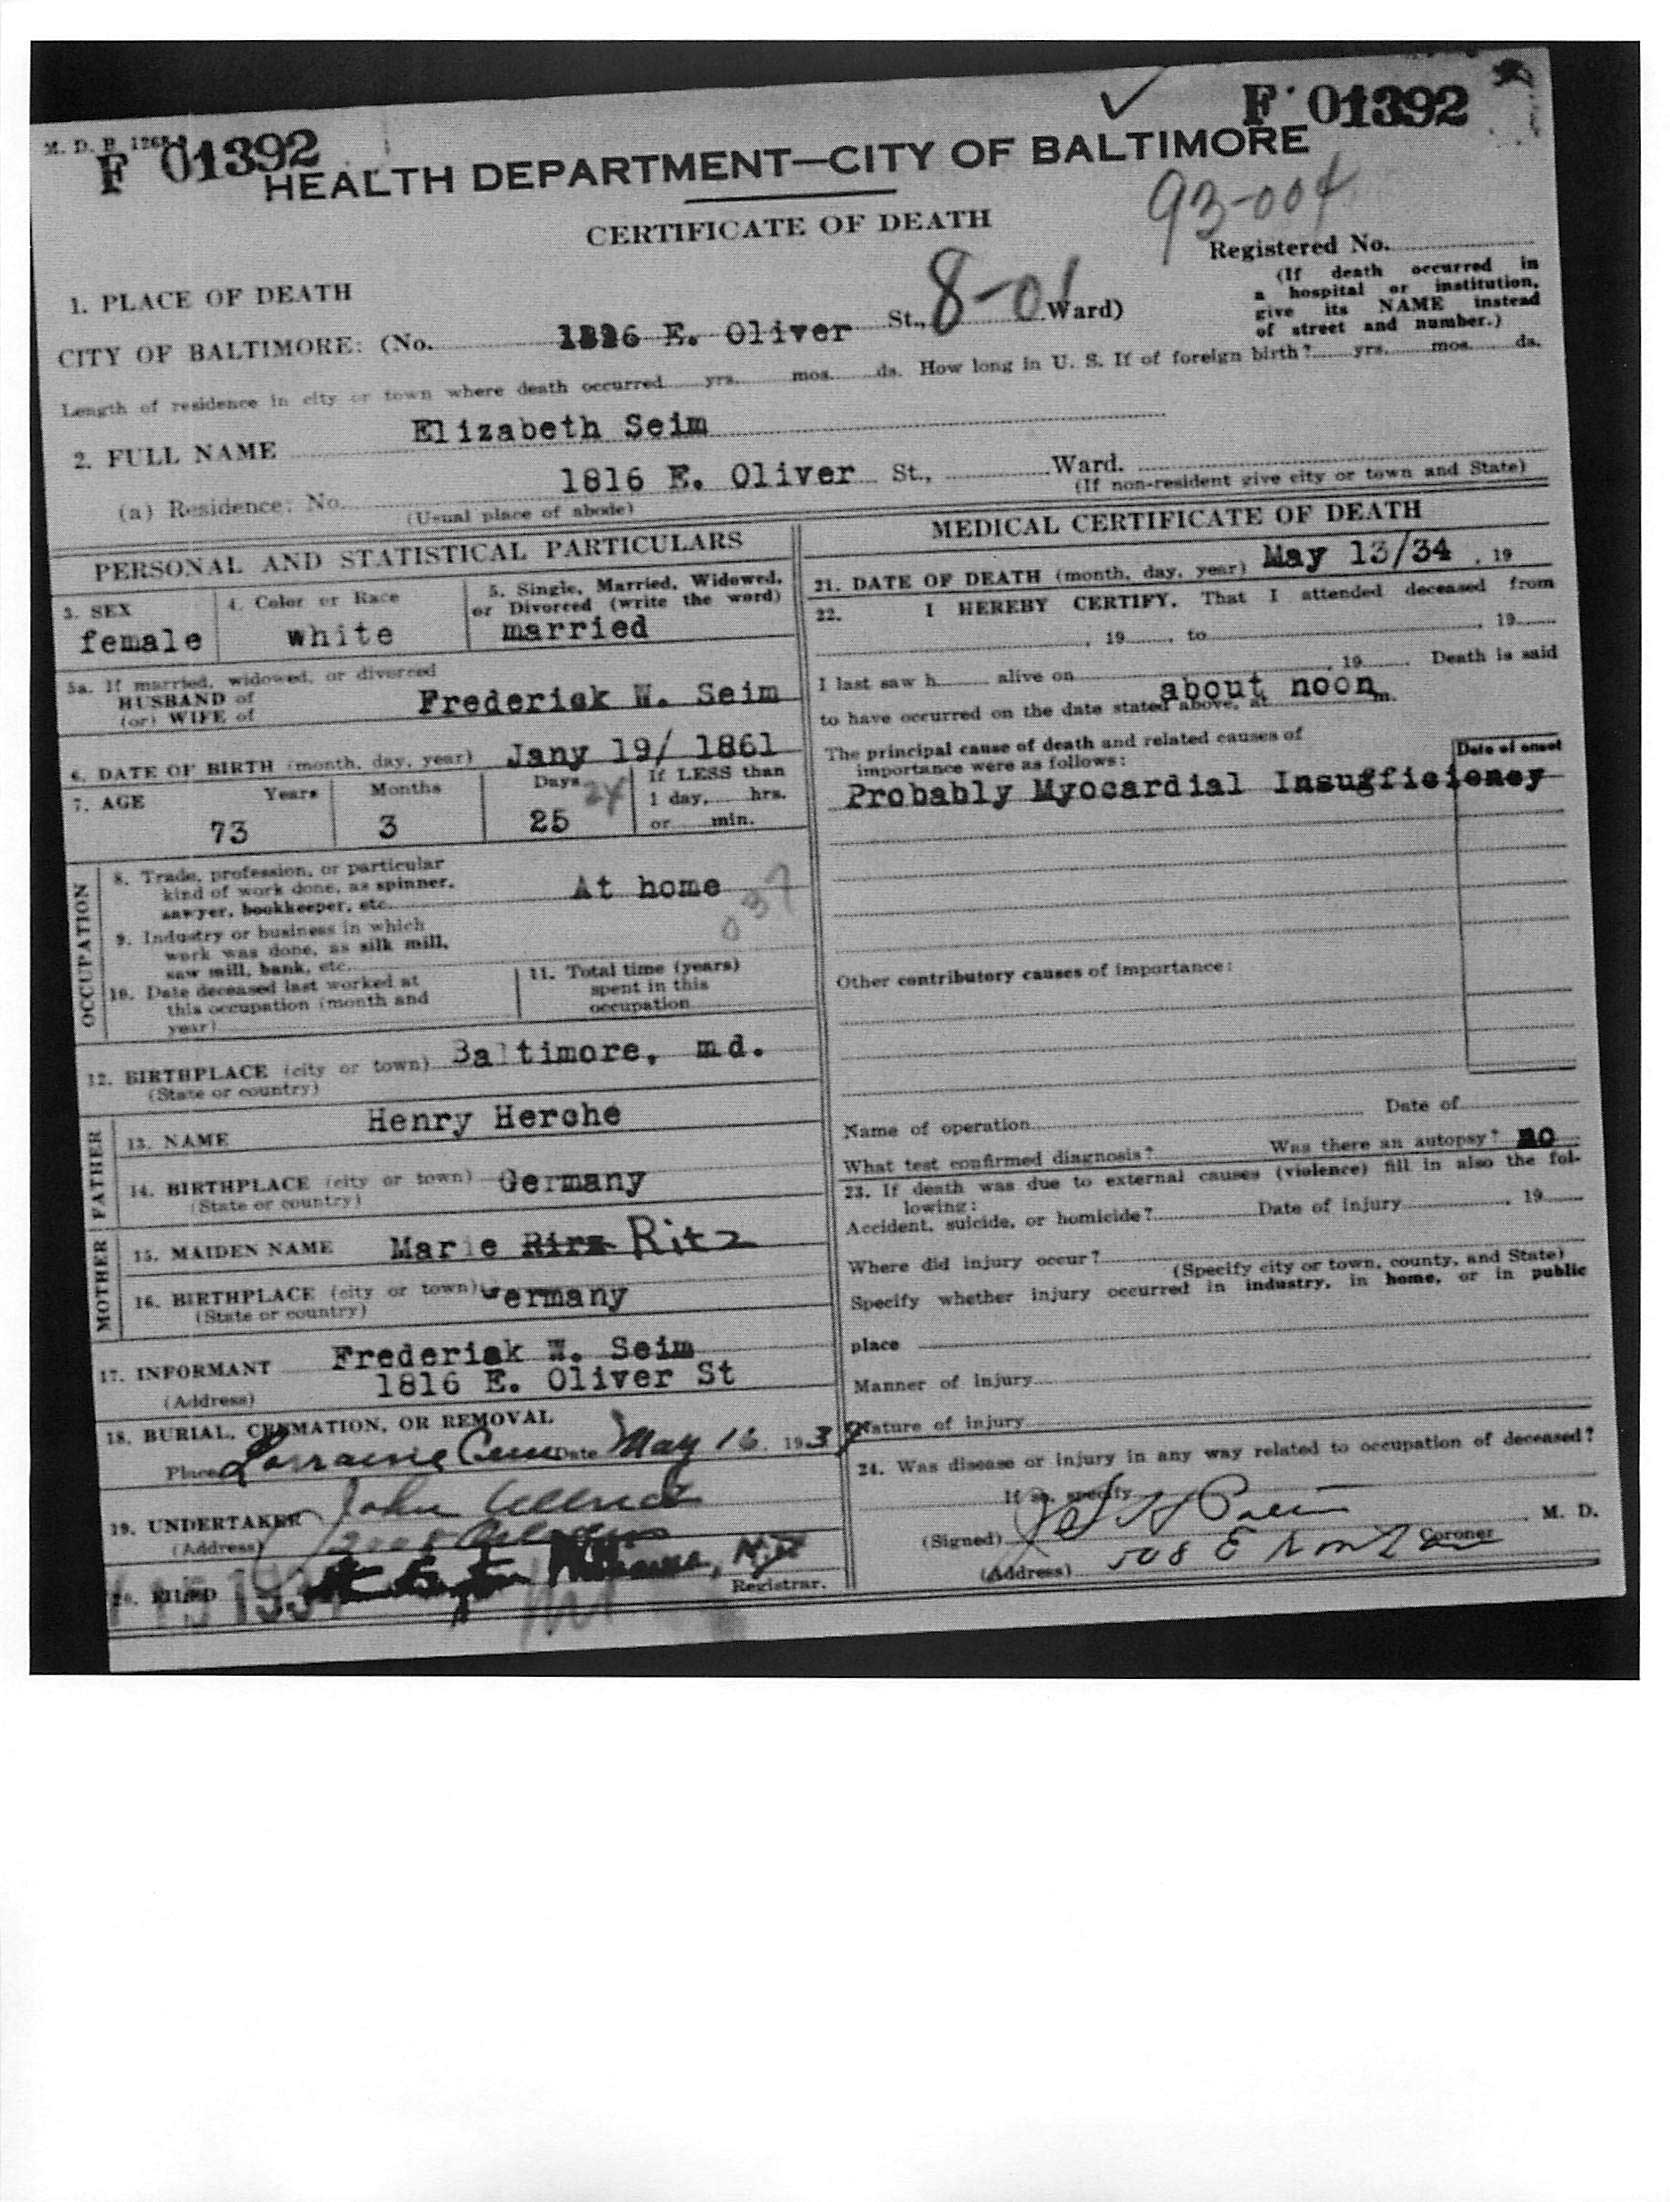 M. D. P. 1265
F 01392
F 01392
HEALTH DEPARTMENT—CITY OF BALTIMORE
93-004
CERTIFICATE OF DEATH
Registered No.
(If death occurred in a hospital or institution, give its NAME instead of street and number.)
1. PLACE OF DEATH
CITY OF BALTIMORE: (No. E. Oliver St., 8-01 Ward)
Length of residence in city or town where death occurred yrs. mos. ds. How long in U. S. If of foreign birth? yrs. mos. ds.
2. FULL NAME Elizabeth Seim
(a) Residence: No. 1816 E. Oliver St., Ward.
(Usual place of abode) (If non-resident give city or town and State)
PERSONAL AND STATISTICAL PARTICULARS
3. SEX
female
4. Color or Race
white
5. Single, Married, Widowed, or Divorced (write the word)
married
5a. If married, widowed, or divorced
HUSBAND of
(or) WIFE of Frederick W. Seim
6. DATE OF BIRTH (month, day, year) Jany 19/ 1861
7. AGE Years Months Days If LESS than
1 day, hrs.
73 3 25 24 or min.
OCCUPATION
8. Trade, profession, or particular
kind of work done, as spinner,
sawyer, bookkeeper, etc. At home
037
9. Industry or business in which
work was done, as silk mill,
saw mill, bank, etc.
10. Date deceased last worked at
this occupation (month and
year)
11. Total time (years)
spent in this
occupation
12. BIRTHPLACE (city or town) Baltimore, md.
(State or country)
FATHER
13. NAME Henry Herche
14. BIRTHPLACE (city or town) Germany
(State or country)
MOTHER
15. MAIDEN NAME Marie Rirz Ritz
16. BIRTHPLACE (city or town) Germany
(State or country)
17. INFORMANT Frederick W. Seim
(Address) 1816 E. Oliver St
18. BURIAL, CREMATION, OR REMOVAL
Place Lorraine Cem Date May 16, 1934
19. UNDERTAKER John
(Address)
20. FILED 15 193
Registrar.
MEDICAL CERTIFICATE OF DEATH
21. DATE OF DEATH (month, day, year) May 13/34 , 19
22. I HEREBY CERTIFY, That I attended deceased from
, 19 , to , 19
I last saw h alive on , 19 . Death is said
to have occurred on the date stated above, at about noon m.
The principal cause of death and related causes of
importance were as follows:
Date of onset
Probably Myocardial Insufficiency
Other contributory causes of importance:
Name of operation Date of
What test confirmed diagnosis? Was there an autopsy? no
23. If death was due to external causes (violence) fill in also the fol-
lowing:
Accident, suicide, or homicide? Date of injury , 19
Where did injury occur?
(Specify city or town, county, and State)
Specify whether injury occurred in industry, in home, or in public
place
Manner of injury
Nature of injury
24. Was disease or injury in any way related to occupation of deceased?
If so, specify
(Signed) M. D.
Coroner
(Address) 508 E